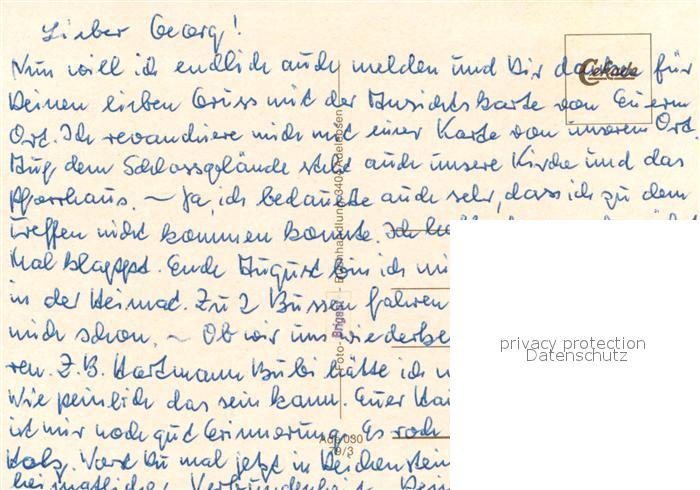 Lieber Georg!
Nun will ich endlich auch melden und Dir danken für
Deinen lieben Gruss mit der Ansichtskarte von Euerm
Ort. Ich revanchiere mich mit einer Karte von unserem Ort.
Auf dem Schlossgelände steht auch unsere Kirche und das
Pfarrhaus. – Ja, ich bedauerte auch sehr, dass ich zu dem
Treffen nicht kommen konnte. Ich
mal klappt. Ende August bin ich mi
in der Heimat. Zu 2 Bussen fahren
mich schon. – Ob wir uns wiederbe
ren. Z.B. Hartmann Bubi hätte ich n
Wie peinlich das sein kann. Euer
ist mir noch gut Erinnerung. Es roch
Holz. Warst Du mal jetzt in Reichenstein
heimatlicher Verbundenheit Dein
Cekade
Foto- Brigsne - Buchhandlung, 3404 Adelebsen
Ade 030
79/3
privacy protection
Datenschutz